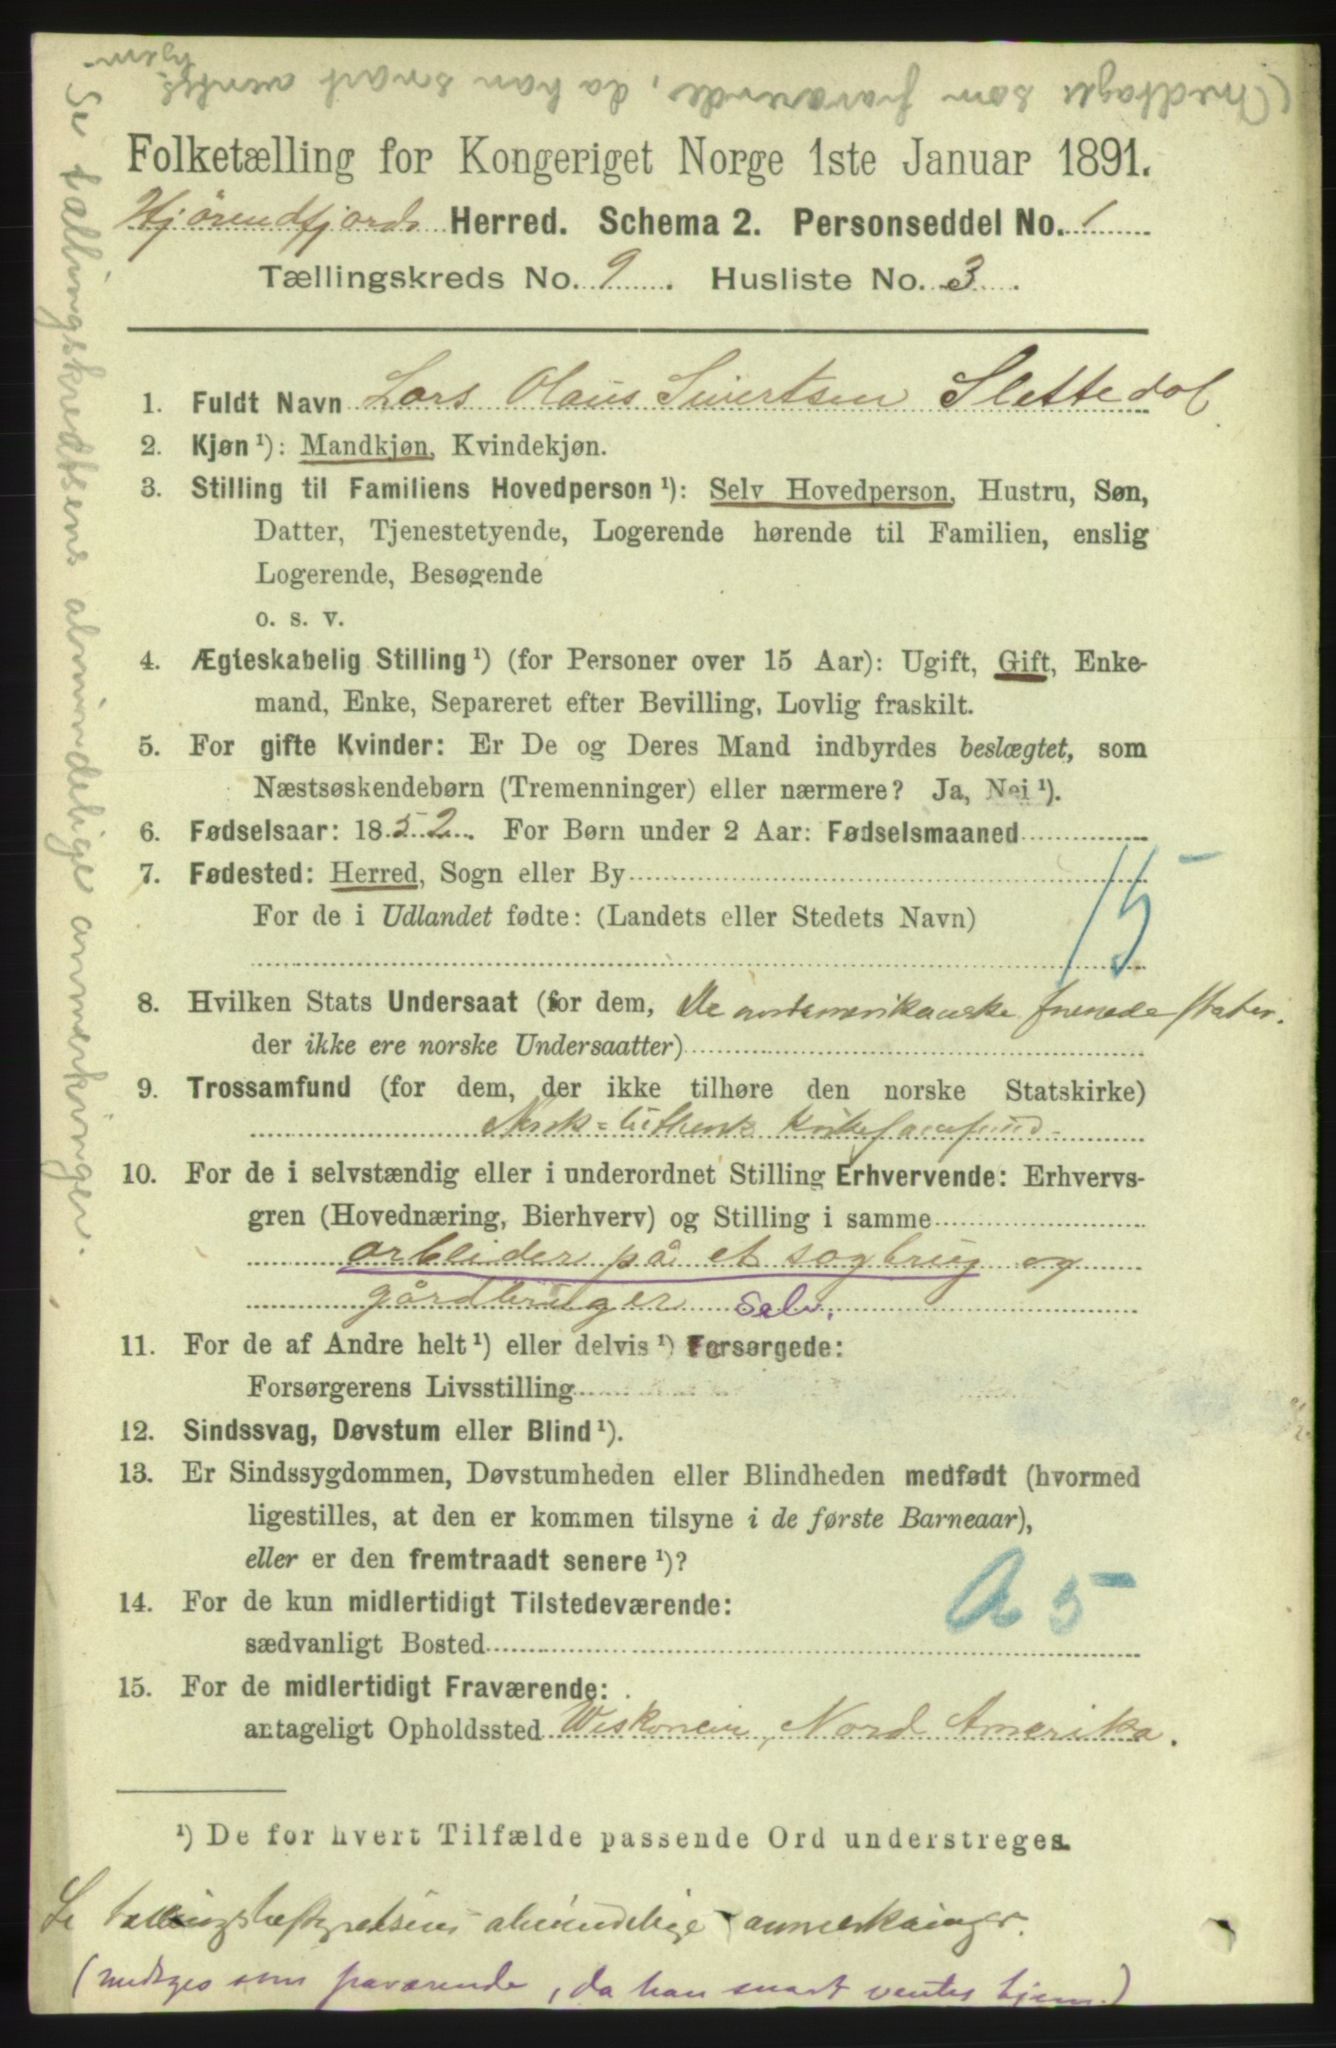 (medtages som fraværende, da han snart ventes
hjem.
Folketælling for Kongeriget Norge 1ste Januar 1891.
Hjørendfjords Herred. Schema 2. Personseddel No. 1
Tællingskreds No. 9. Husliste No. 3.
1. Fuldt Navn Lars Olaus Sivertsen Slettedal
2. Kjøn ¹): Mandkjøn, Kvindekjøn.
3. Stilling til Familiens Hovedperson ¹): Selv Hovedperson, Hustru, Søn,
Datter, Tjenestetyende, Logerende hørende til Familien, enslig
Logerende, Besøgende
o. s. v.
4. Ægteskabelig Stilling ¹) (for Personer over 15 Aar): Ugift, Gift, Enke-
mand, Enke, Separeret efter Bevilling, Lovlig fraskilt.
5. For gifte Kvinder: Er De og Deres Mand indbyrdes beslægtet, som
Næstsøskendebørn (Tremenninger) eller nærmere? Ja, Nei ¹).
6. Fødselsaar: 1852. For Børn under 2 Aar: Fødselsmaaned
7. Fødested: Herred, Sogn eller By
15
For de i Udlandet fødte: (Landets eller Stedets Navn)
8. Hvilken Stats Undersaat (for dem, De nordamerikanske forenede stater.
der ikke ere norske Undersaatter)
9. Trossamfund (for dem, der ikke tilhøre den norske Statskirke)
Norsk-luthersk kirkesamfund
10. For de i selvstændig eller i underordnet Stilling Erhvervende: Erhvervs-
gren (Hovednæring, Bierhverv) og Stilling i samme
arbeider på et sagbrug og
gårdbruger selv.
11. For de af Andre helt ¹) eller delvis ¹) Forsørgede:
Forsørgerens Livsstilling
12. Sindssvag, Døvstum eller Blind ¹).
13. Er Sindssygdommen, Døvstumheden eller Blindheden medfødt (hvormed
ligestilles, at den er kommen tilsyne i de første Barneaar),
eller er den fremtraadt senere ¹)?
A 5
14. For de kun midlertidigt Tilstedeværende:
sædvanligt Bosted
15. For de midlertidigt Fraværende:
antageligt Opholdssted Wiskonsin, Nord Amerika.
¹) De for hvert Tilfælde passende Ord understreges.
Se tællingsbestyrelsens almindelige anmerkninger.
(medtages som fraværende, da han snart ventes hjem.)
Se tællingskredsens almindelige anmerkninger.